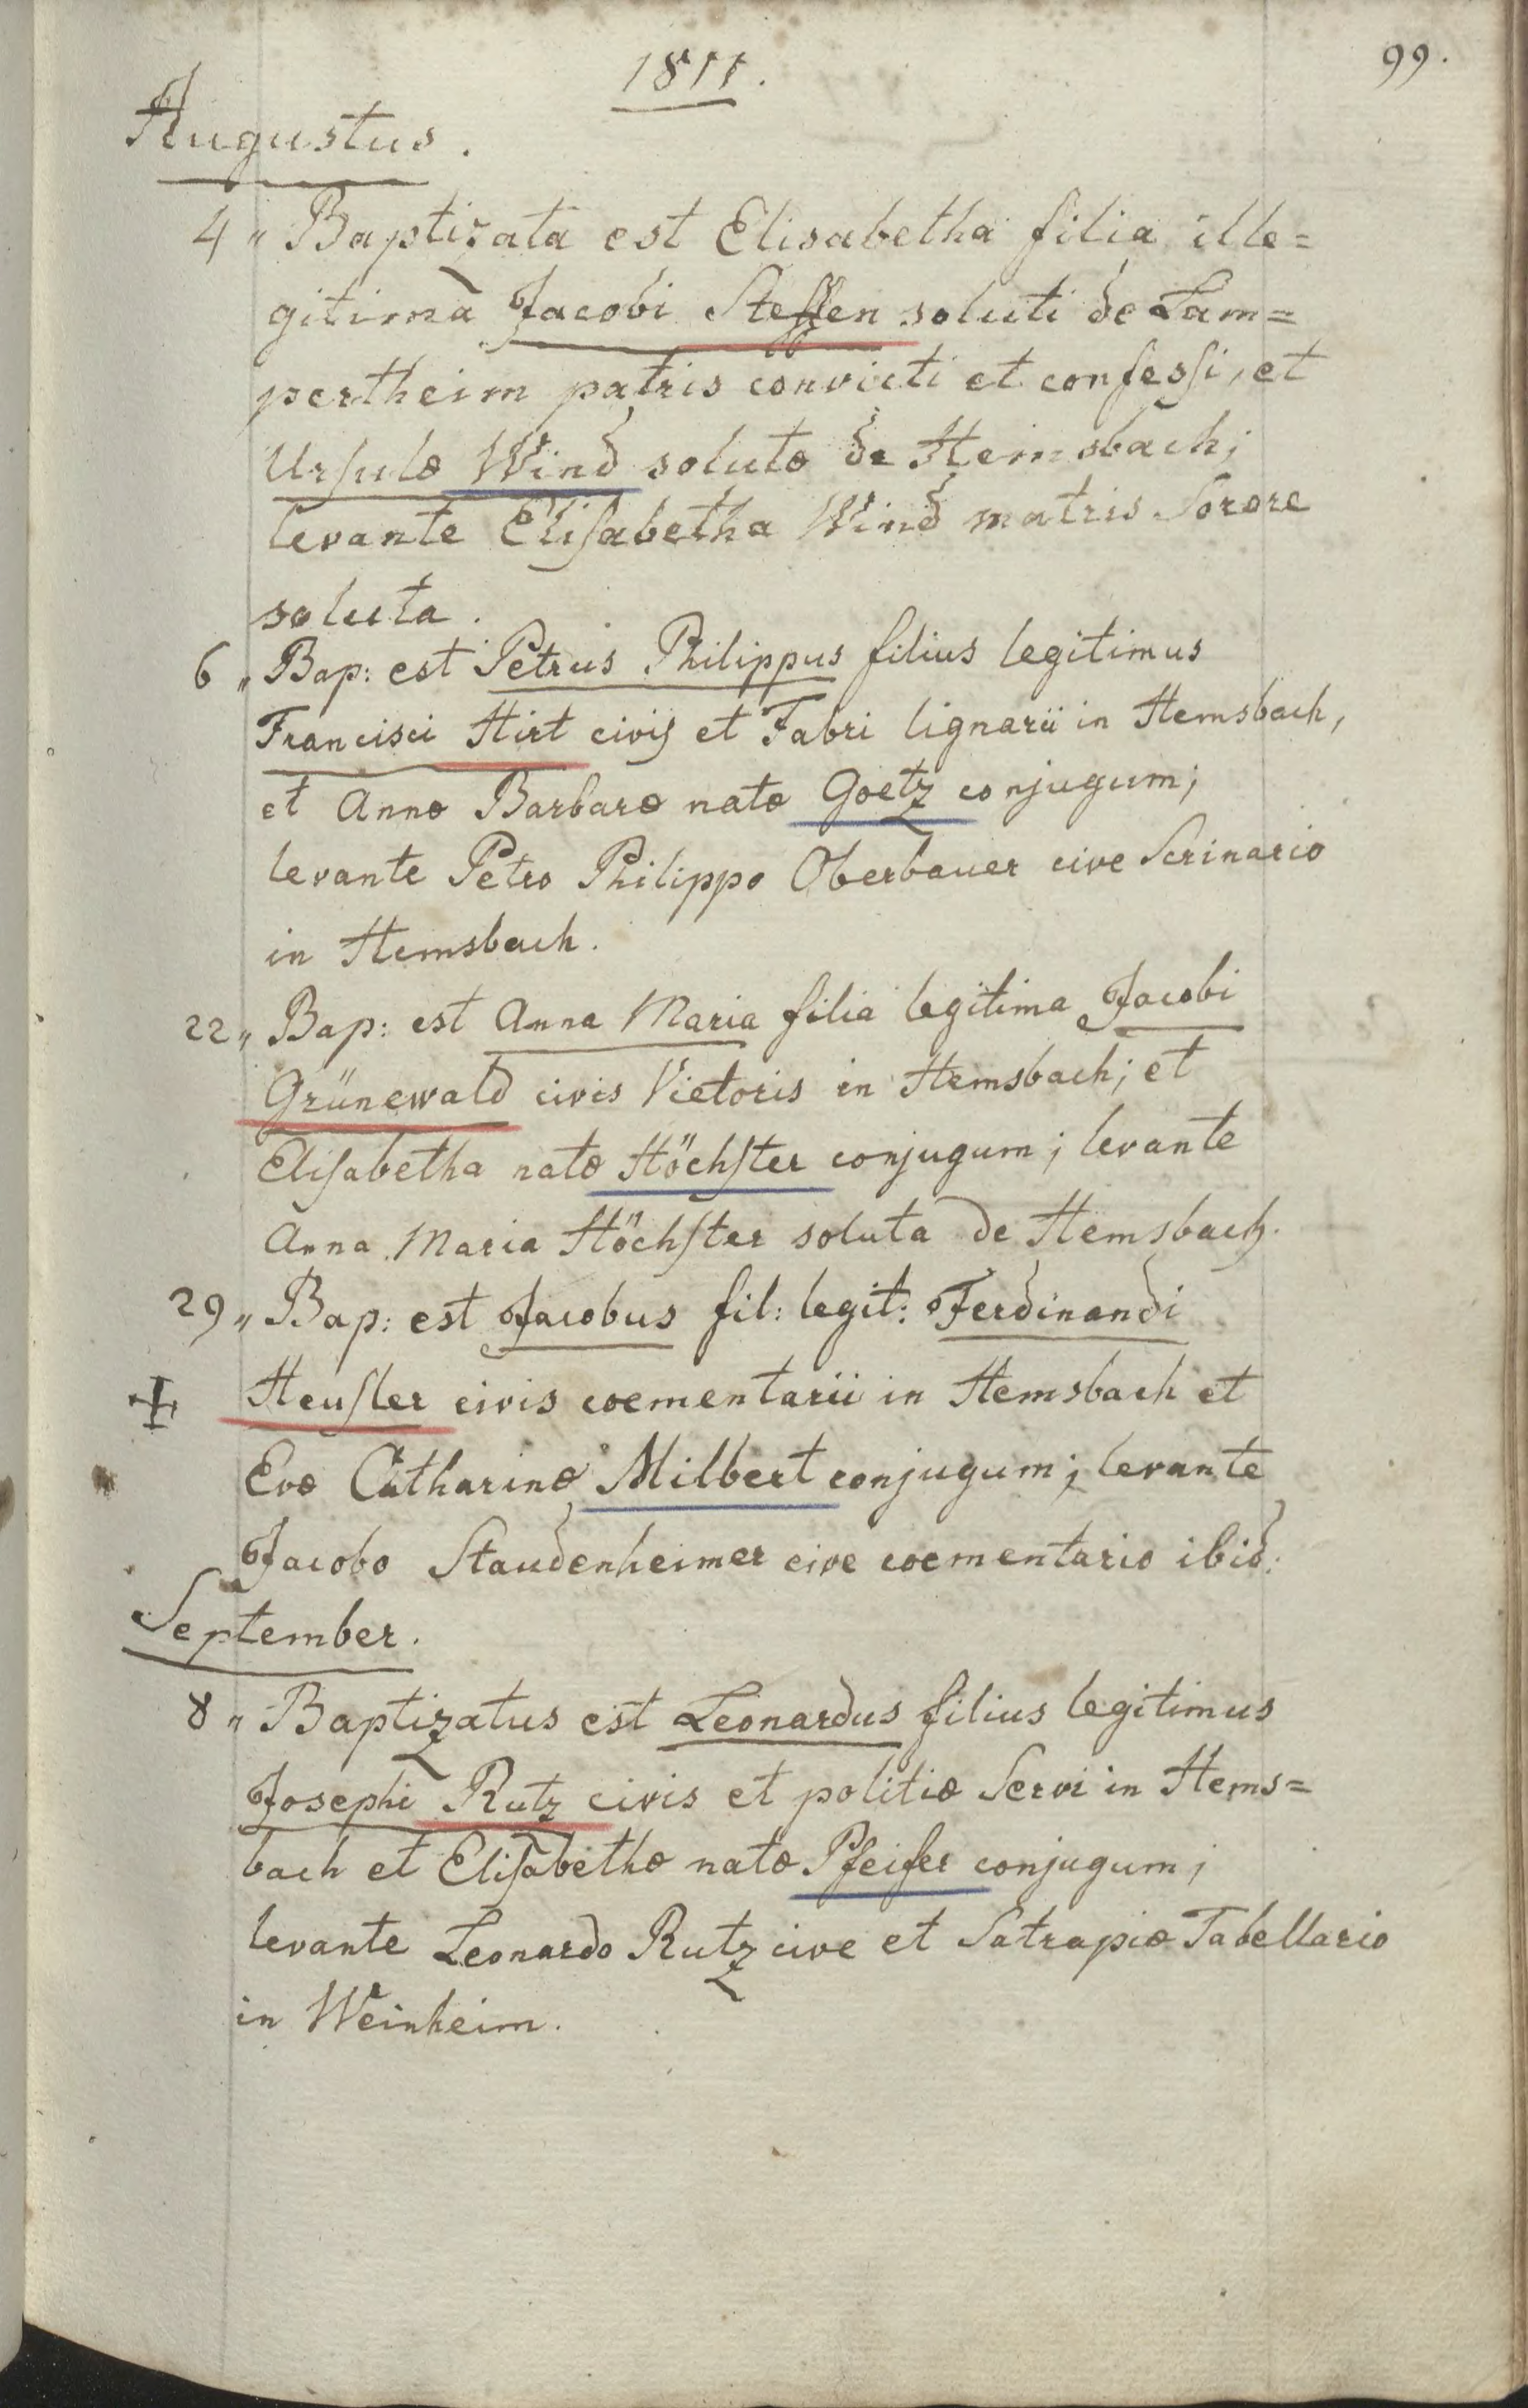 1811.
99.
Augustus.
4 „ Baptizata est Elisabetha filia ille=
gitima Jacobi Steffen soluti de Lam=
pertheim patris convicti et confessi, et
Ursulæ Wind solutæ de Hemsbach;
levante Elisabetha Wind matris Sorore
soluta.
6 „ Bap: est Petrus Philippus filius legitimus
Francisci Hirt civis et Fabri lignarii in Hemsbach,
et Annæ Barbaræ natæ Goetz conjugum;
levante Petro Philippo Oberbauer cive Scrinario
in Hemsbach.
22 „ Bap: est Anna Maria filia legitima Jacobi
Grünewald civis Vietoris in Hemsbach; et
Elisabetha natæ Höchster conjugum; levante
Anna Maria Höchster soluta de Hemsbach.
29 „ Bap: est Jacobus fil: legit: Ferdinandi
Heusler civis coementarii in Hemsbach et
Evæ Catharinæ Milbert conjugum; levante
Jacobo Staudenheimer cive coementario ibid:
September.
8 „ Baptizatus est Leonardus filius legitimus
Josephi Rutz civis et politiæ Servi in Hems=
bach et Elisabethæ natæ Pfeifer conjugum;
levante Leonardo Rutz cive et Satrapiæ Tabellario
in Weinheim.